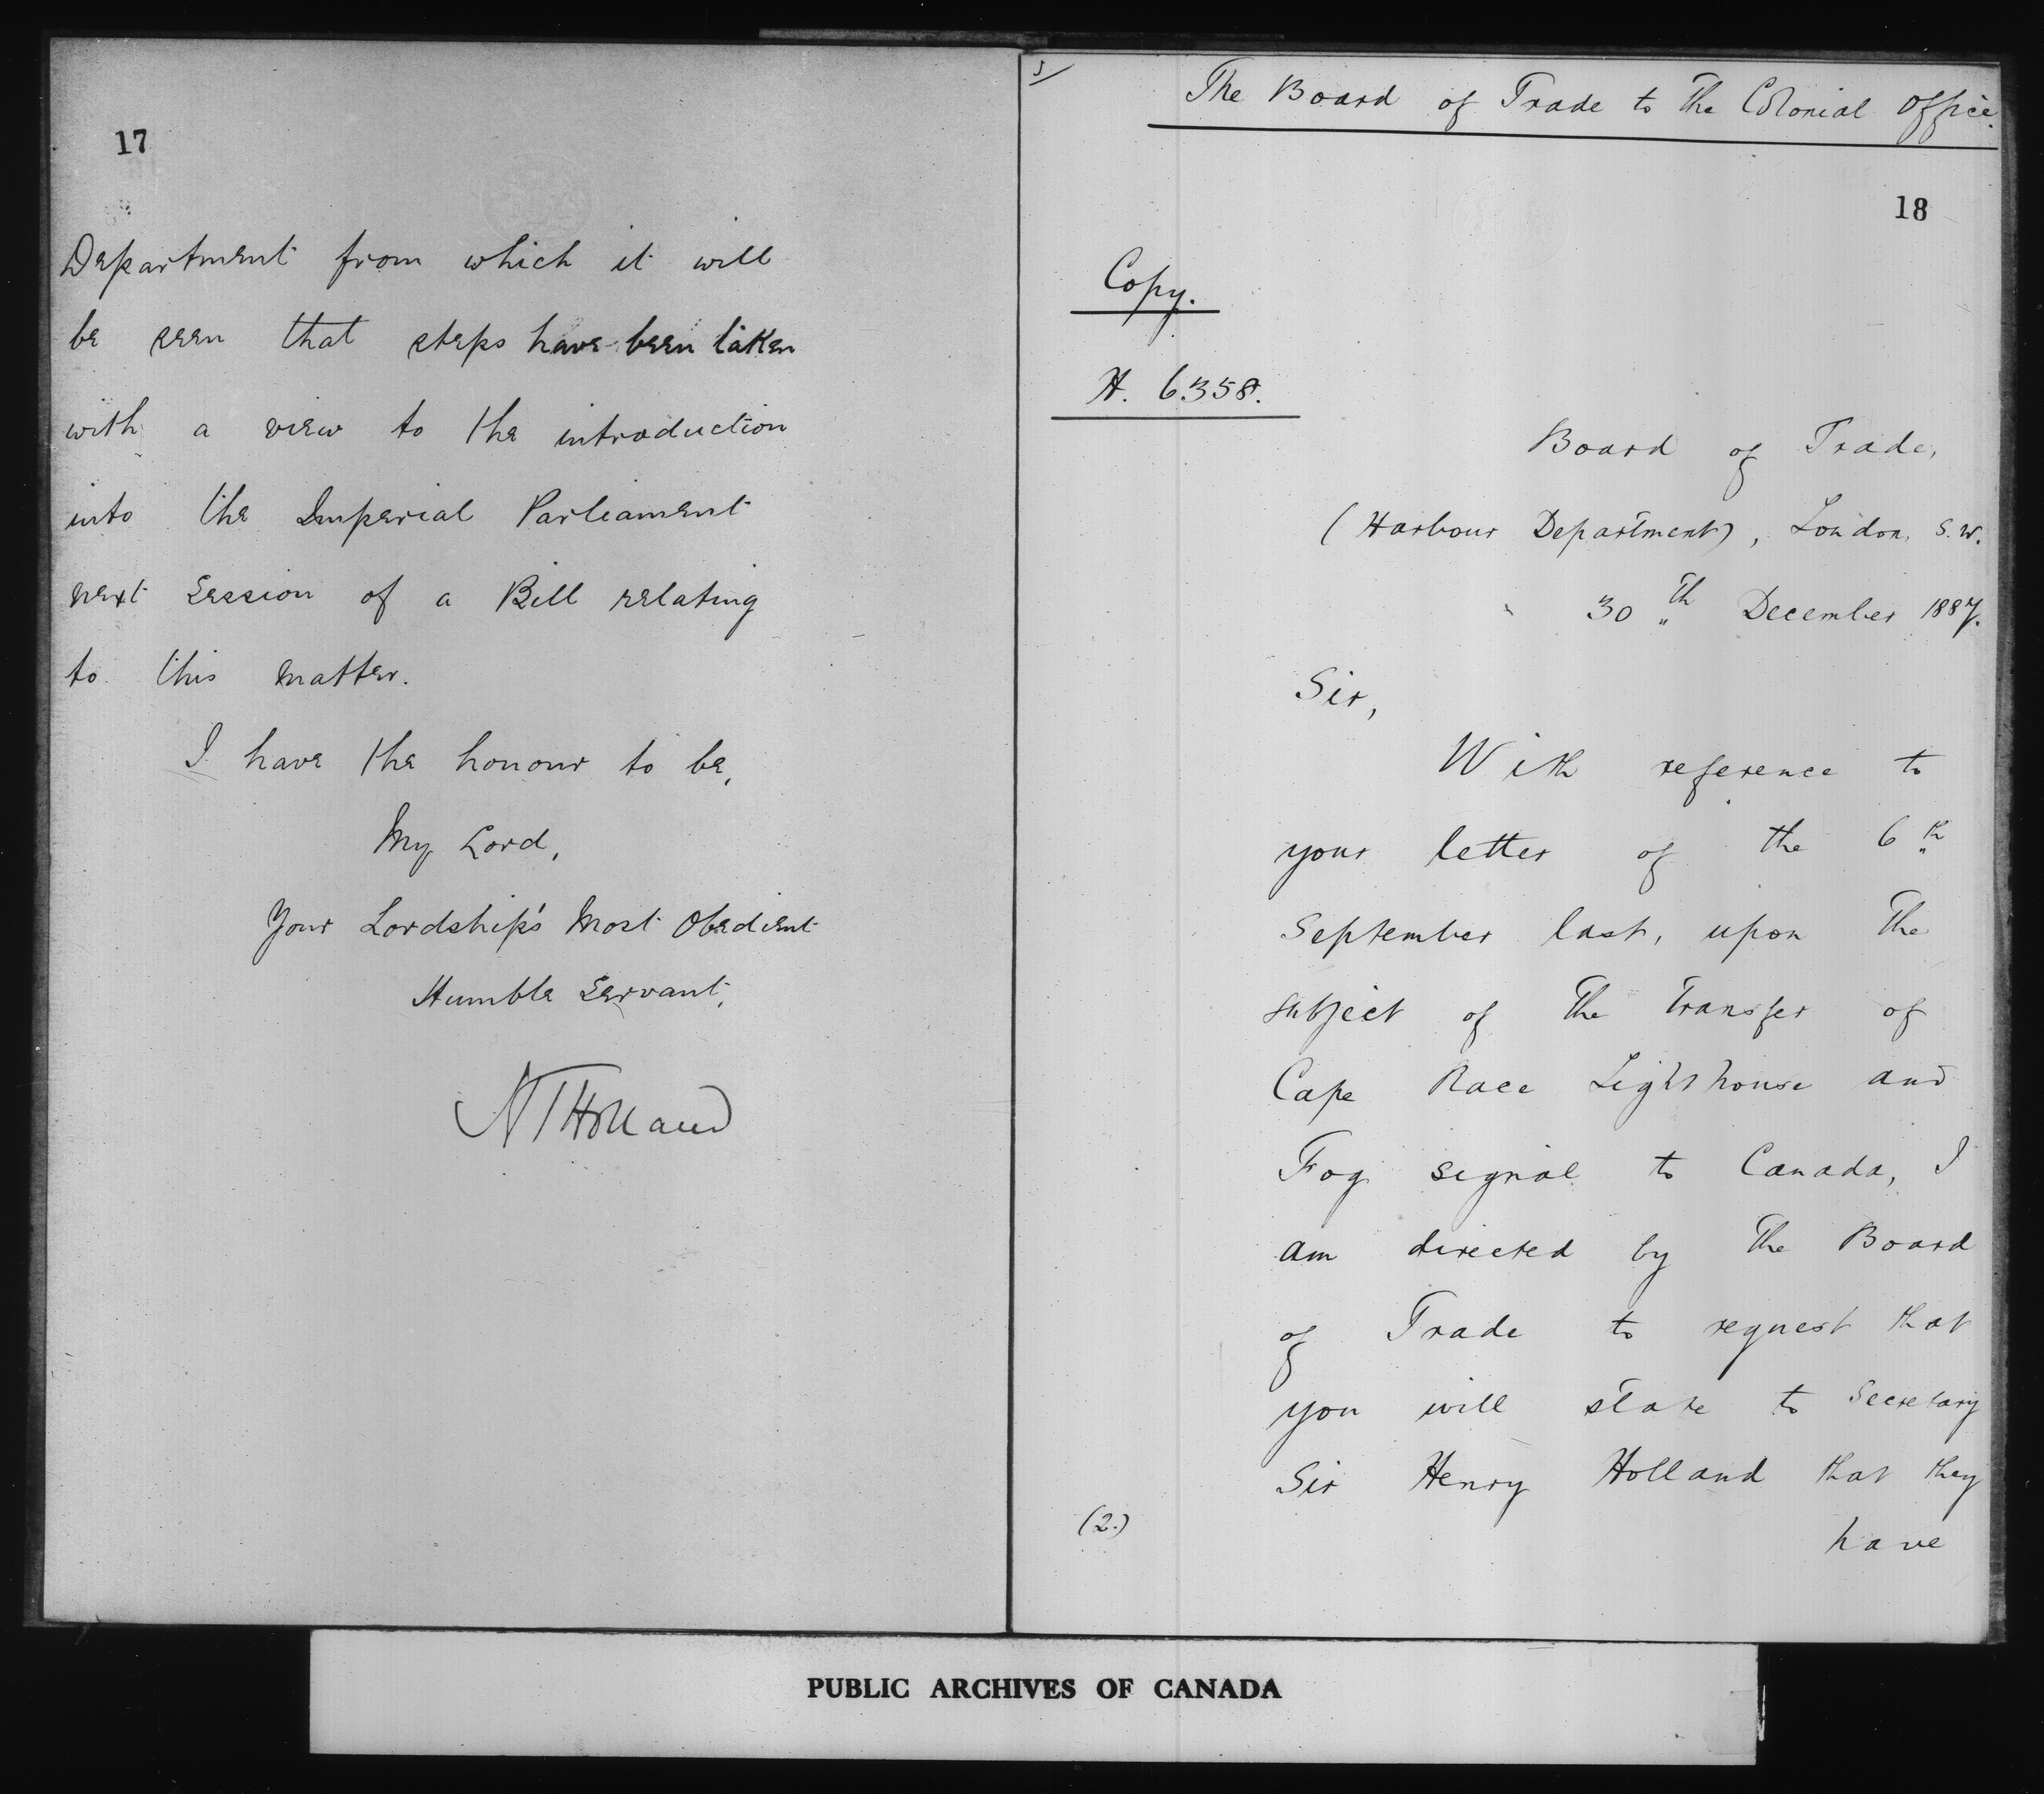 17
Department from which it will
be seen that steps have been taken
with a view to the introduction
into the Imperial Parliament
next Session of a Bill relating
to this matter.
I have the honour to be,
My Lord,
Your Lordship's Most Obedient
Humble Servant,
HTHolland
The Board of Trade to the Colonial Office.
18
Copy.
H. 6358.
Board of Trade,
(Harbour Department), London, S.W.
30th December 1887.
Sir,
With reference to
your letter of the 6th
September last, upon the
subject of the transfer of
Cape Race Lighthouse and
Fog signal to Canada, I
am directed by the Board
of Trade to request that
you will state to Secretary
Sir Henry Holland that they
(2.)
have
PUBLIC ARCHIVES OF CANADA